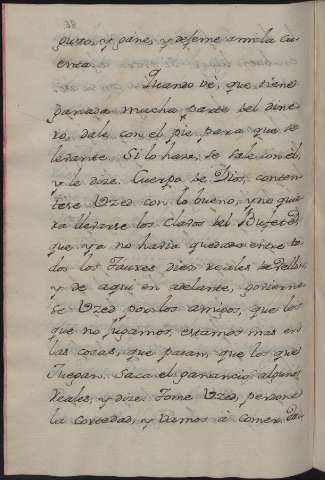 puro, y gane, y dejeme a mi la cu-
enta.
Quando vè, que tiene
ganada mucha parte del dine
ro, dale con el pie para que se
levante. Si lo haze, se sale con èl,
y le dize. Cuerpo de Dios, conten-
tese Vzed con lo bueno, y no quie
ra llevarse los Clavos del Bufete;
que ya no havia quedado entre to
dos los Taures diez reales de Vellon
y de aqui en adelante, govierne
se Vzed por los amigos, que los
que no jugamos, estamos mas en
las cosas, que pasan, que los que
Juegan. Saca el ganancioso algunos
reales, y dize. Tome Vzed, perdone
la cortedad, y vamos à comer. Dan